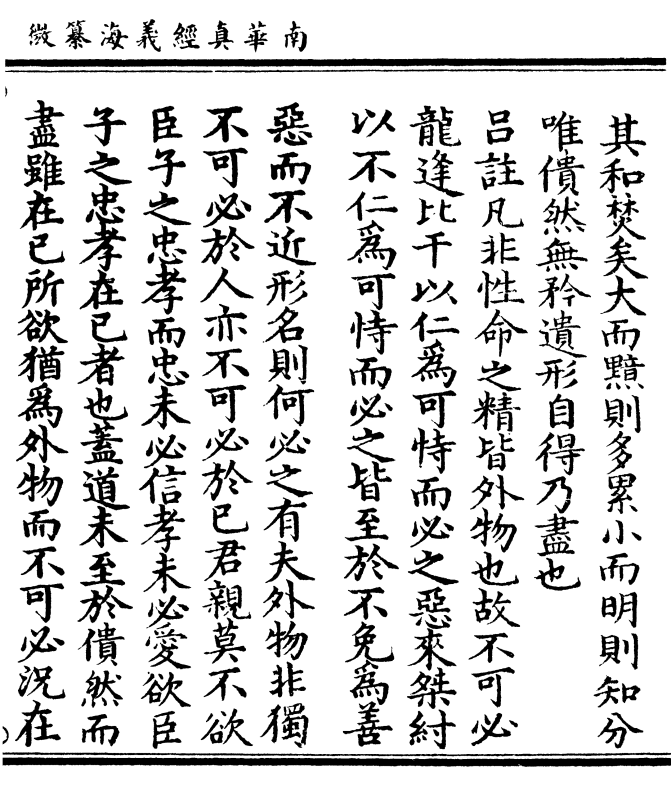 南華真經義海纂微
其和焚矣大而黯則多累小而明則知分
唯僓然無矜遺形自得乃盡也
呂註凡非性命之精皆外物也故不可必
龍逢比干以仁爲可恃而必之惡來桀紂
以不仁爲可恃而必之皆至於不免爲善
惡而不近形名則何必之有夫外物非獨
不可必於人亦不可必於已君親莫不欲
臣子之忠孝而忠未必信孝未必愛欲臣
子之忠孝在已者也蓋道未至於僓然而
盡雖在已所欲猶爲外物而不可必況在